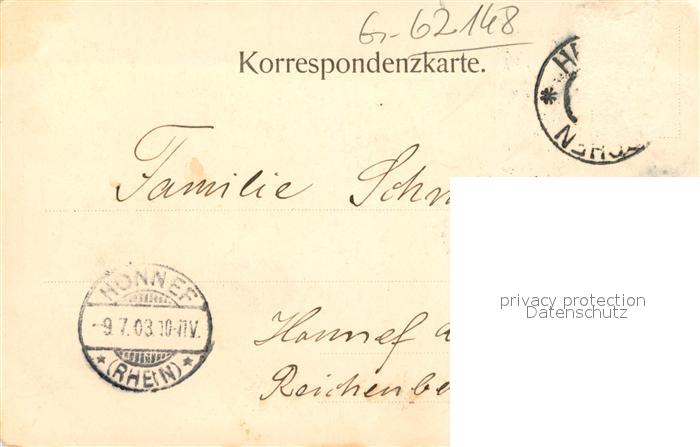 Gr-62148
Korrespondenzkarte.
Familie
HONNEF
-9.7.03.10-11V.
* (RHEIN) *
Honnef a
Reichenbe
privacy protection
Datenschutz